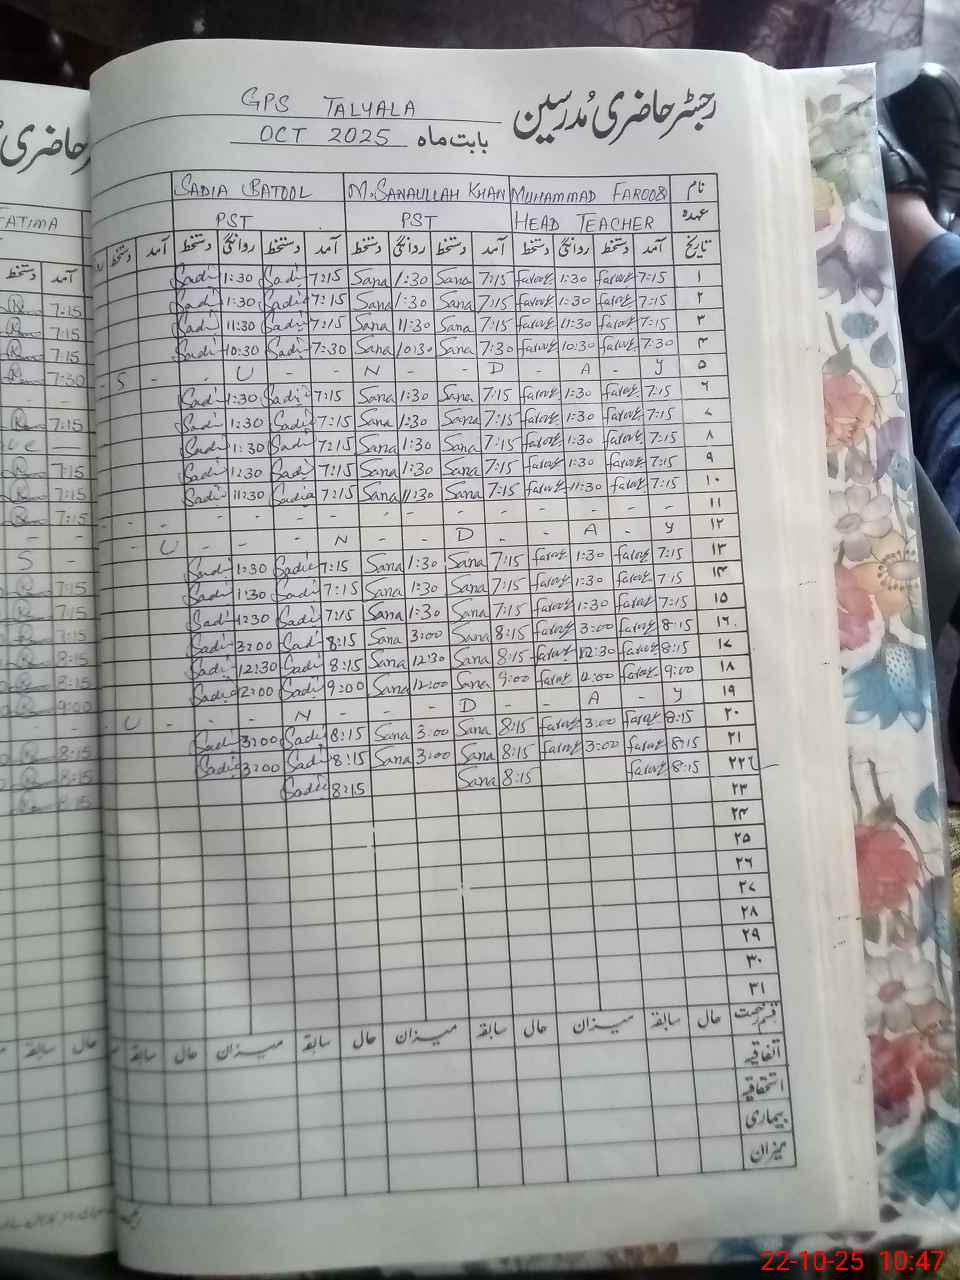 رجسٹر حاضری مُدرسین
GPS TALYALA
بابت ماہ OCT 2025
نام MUHAMMAD FAROOQ M.SANAULLAH KHAN SADIA BATOOL
عہدہ HEAD TEACHER PST PST
تاریخ آمد دستخط روانگی دستخط آمد دستخط روانگی دستخط آمد دستخط روانگی دستخط آمد دستخط
۱ 7:15 farooq 1:30 farooq 7:15 Sana 1:30 Sana 7:15 Sadia 1:30 Sadia
۲ 7:15 farooq 1:30 farooq 7:15 Sana 1:30 Sana 7:15 Sadia 1:30 Sadia
۳ 7:15 farooq 11:30 farooq 7:15 Sana 11:30 Sana 7:15 Sadia 11:30 Sadia
۴ 7:30 farooq 10:30 farooq 7:30 Sana 10:30 Sana 7:30 Sadia 10:30 Sadia
۵ - S - - U - - N - - D - A - Y
۶ 7:15 farooq 1:30 farooq 7:15 Sana 1:30 Sana 7:15 Sadia 1:30 Sadia
۷ 7:15 farooq 1:30 farooq 7:15 Sana 1:30 Sana 7:15 Sadia 1:30 Sadia
۸ 7:15 farooq 1:30 farooq 7:15 Sana 1:30 Sana 7:15 Sadia 1:30 Sadia
۹ 7:15 farooq 1:30 farooq 7:15 Sana 1:30 Sana 7:15 Sadia 1:30 Sadia
۱۰ 7:15 farooq 11:30 farooq 7:15 Sana 11:30 Sana 7:15 Sadia 11:30 Sadia
۱۱ - - - - - - - - - - -
۱۲ - U - - - N - - D - - A - Y
۱۳ 7:15 farooq 1:30 farooq 7:15 Sana 1:30 Sana 7:15 Sadia 1:30 Sadia
۱۴ 7:15 farooq 1:30 farooq 7:15 Sana 1:30 Sana 7:15 Sadia 1:30 Sadia
۱۵ 7:15 farooq 1:30 farooq 7:15 Sana 1:30 Sana 7:15 Sadia 1:30 Sadia
۱۶ 8:15 farooq 3:00 farooq 8:15 Sana 3:00 Sana 8:15 Sadia 3:00 Sadia
۱۷ 8:15 farooq 12:30 farooq 8:15 Sana 12:30 Sana 8:15 Sadia 12:30 Sadia
۱۸ 9:00 farooq 12:00 farooq 9:00 Sana 12:00 Sana 9:00 Sadia 12:00 Sadia
۱۹ - U - - - N - - - D - - A - Y
۲۰ 8:15 farooq 3:00 farooq 8:15 Sana 3:00 Sana 8:15 Sadia 3:00 Sadia
۲۱ 8:15 farooq 3:00 farooq 8:15 Sana 3:00 Sana 8:15 Sadia 3:00 Sadia
۲۲ 8:15 farooq 8:15 Sana 8:15 Sadia
۲۳
۲۴
۲۵
۲۶
۲۷
۲۸
۲۹
۳۰
۳۱
قسم رخصت حال سابقہ میزان حال سابقہ میزان حال سابقہ میزان حال سابقہ
اتفاقیہ
استحقاقیہ
بیماری
میزان
حاضری
FATIMA
آمد دستخط
7:15
7:15
7:15
7:30
- -
7:15
7:15
7:15
7:15
- -
S
7:15
7:15
7:15
8:15
8:15
9:00
8:15
8:15
8:15
حال سابقہ
22-10-25 10:47